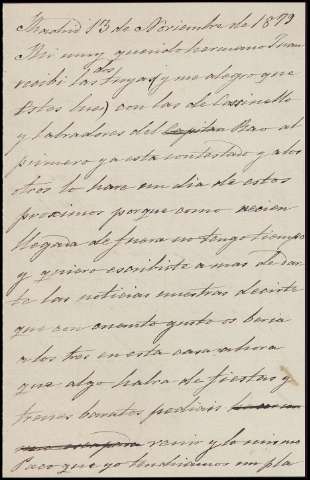 Madrid 13 de Noviembre de 1879
Mi muy querido hermano Juan
recibi las dos tuyas (y me alegro que
estes bue) con las de Cassinello
y labradores del Capitan Bao al
primero ya esta contestado y a los
otros lo hare un dia de estos
proximos porque como recien
llegada de fuera no tengo tiempo
y quiero escribirte a mas de dar
te las noticias nuestras decirte
que con cuanto gusto os beria
a los tres en esta casa ahora
que algo habra de fiestas y
trenes baratos podiais
una escapada venir y lo mismo
Paco que yo tendriamos un pla